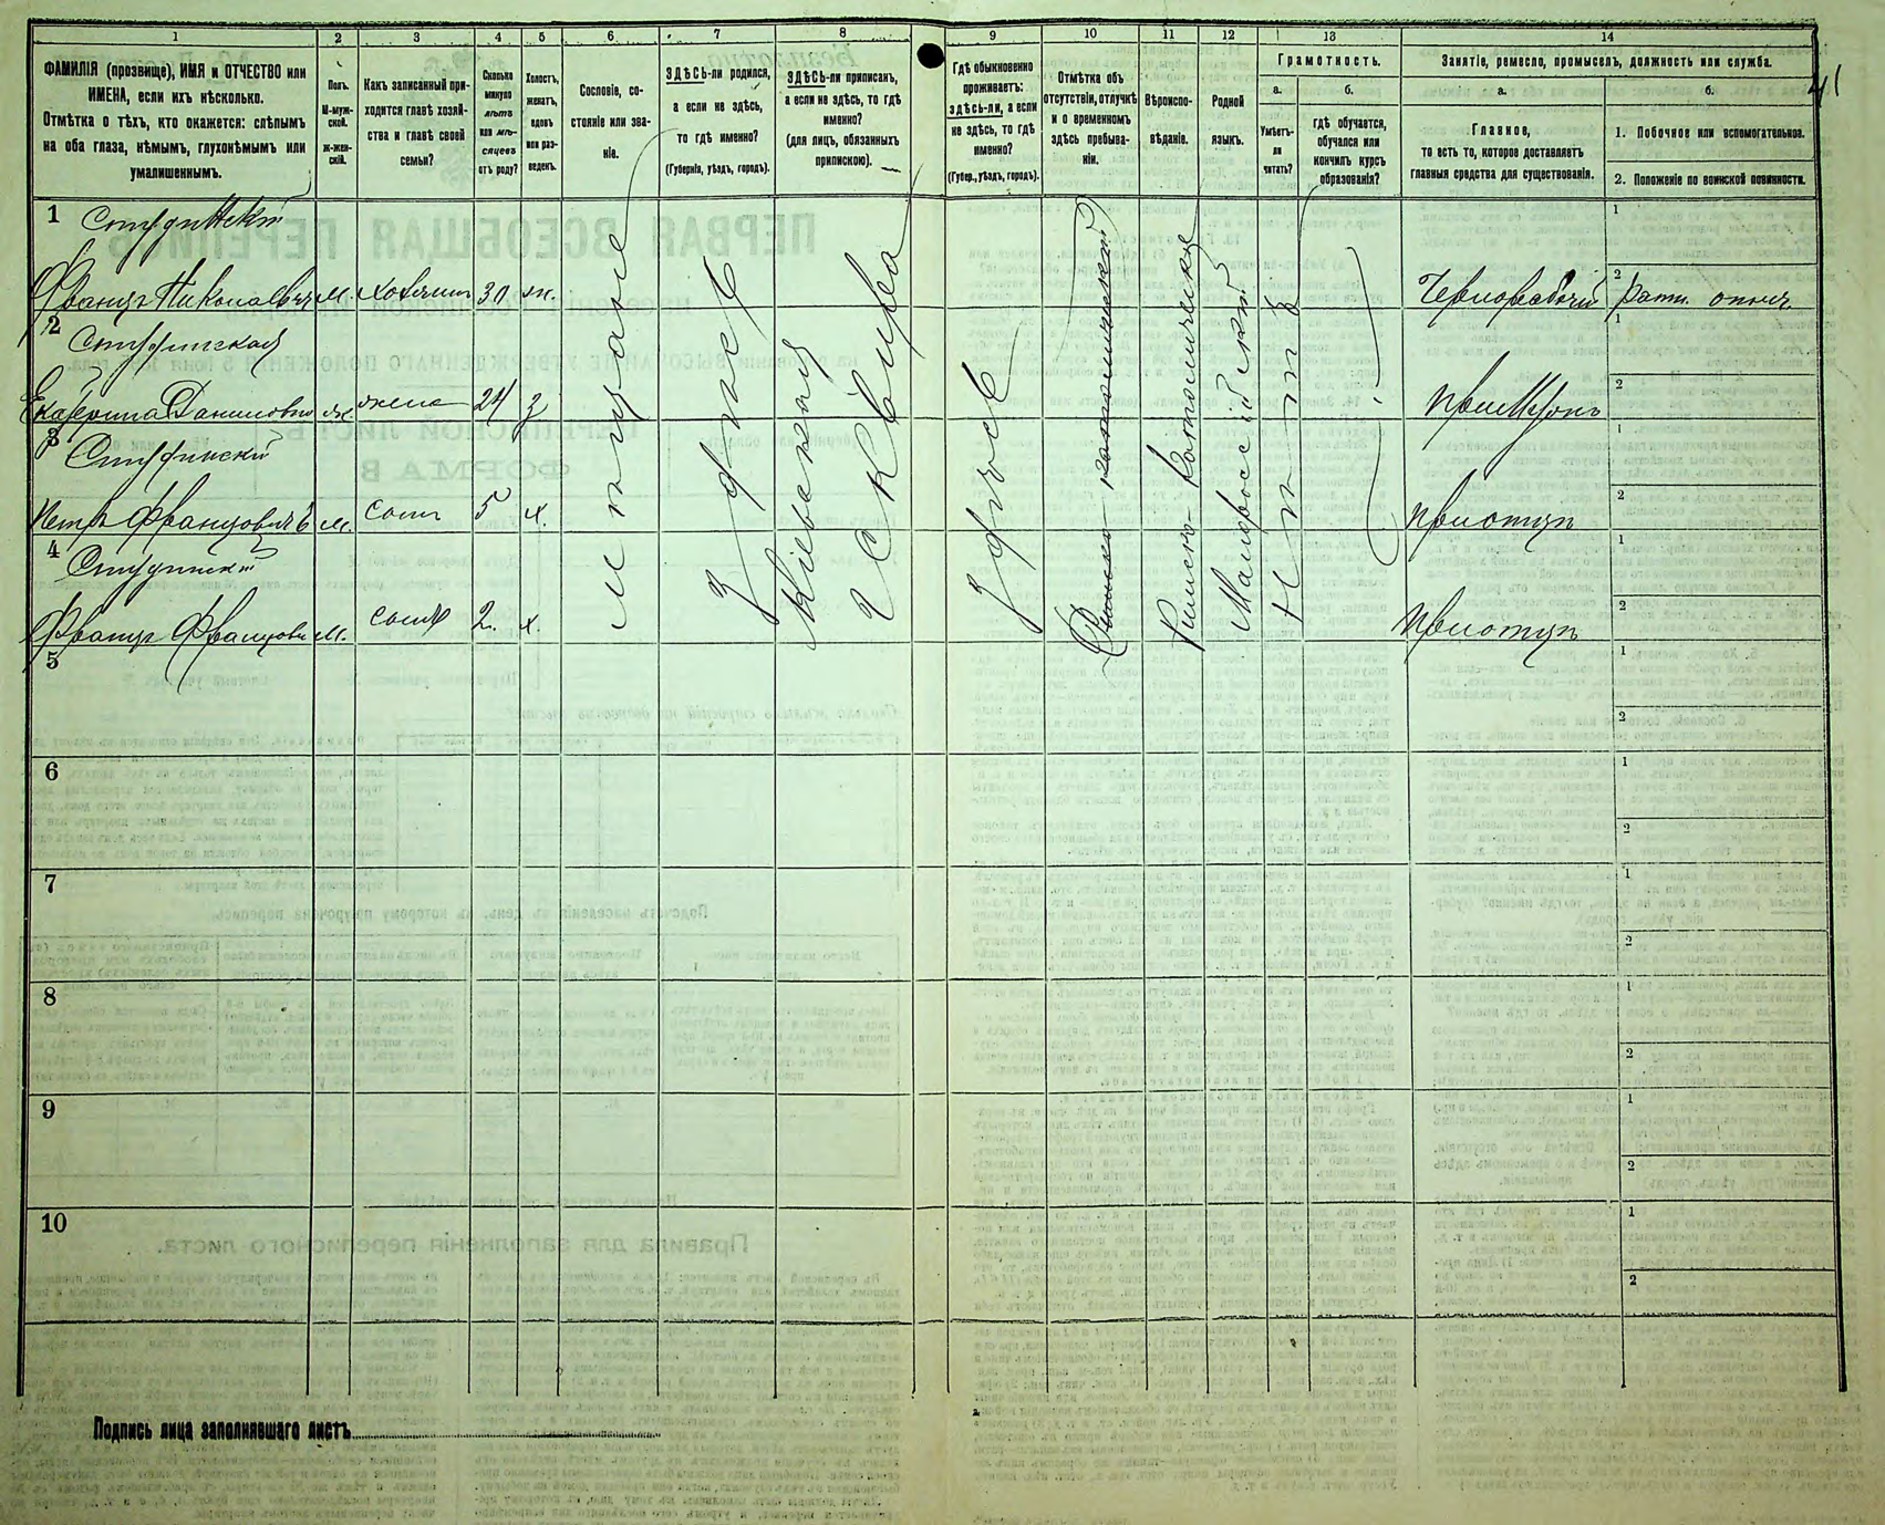 1
2
3
4
5
6
7
8
9
10
11
12
13
14
ФАМИЛІЯ (прозвище), ИМЯ и ОТЧЕСТВО или
ИМЕНА, если ихъ нѣсколько.
Отмѣтка о тѣхъ, кто окажется: слѣпымъ
на оба глаза, нѣмымъ, глухонѣмымъ или
умалишеннымъ.
Полъ.
М-муж-
ской.
Ж-жен-
скій.
Какъ записанный при-
ходится главѣ хозяй-
ства и главѣ своей
семьи?
Сколько
минуло
лѣтъ
или мѣ-
сяцевъ
отъ роду?
Холостъ,
женатъ,
вдовъ
или раз-
веденъ.
Сословіе, со-
стояніе или зва-
ніе.
ЗДѢСЬ-ли родился,
а если не здѣсь,
то гдѣ именно?
(Губернія, уѣздъ, городъ).
ЗДѢСЬ-ли приписанъ,
а если не здѣсь, то гдѣ
именно?
(для лицъ, обязанныхъ
припискою).
Гдѣ обыкновенно
проживаетъ:
здѣсь-ли, а если
не здѣсь, то гдѣ
именно?
(Губер., уѣздъ, городъ).
Отмѣтка объ
отсутствіи, отлучкѣ
и о временномъ
здѣсь пребыва-
ніи.
Вѣроиспо-
вѣданіе.
Родной
языкъ.
Грамотность.
а.
Умѣетъ-
ли
читать?
б.
гдѣ обучается,
обучался или
кончилъ курсъ
образованія?
Занятіе, ремесло, промыселъ, должность или служба.
а.
Главное,
то есть то, которое доставляетъ
главныя средства для существованія.
б.
1. Побочное или вспомогательное.
2. Положеніе по воинской повинности.
41
1
Студинскій
Францъ Николаевичъ м. хозяинъ 30 ж.
Чернорабочій
1
2 Ратн. ополч.
2
Студинская
Екатерина Даниловна ж. жена 24 з
при мужѣ
1
2
3
Студинскій
Петръ Францовичъ м. сынъ 5 х.
при отцѣ
1
2
4
Студинскій
Францъ Францов м. сынъ 2. х.
при отцѣ
1
2
мѣщане
здѣсь
Кіевская
г Сквира
здѣсь
Римско-католическій
Римско-Католическое
Малороссійскій
Нѣтъ
5
1
2
6
1
2
7
1
2
8
1
2
9
1
2
10
1
2
Подпись лица заполнявшаго листъ